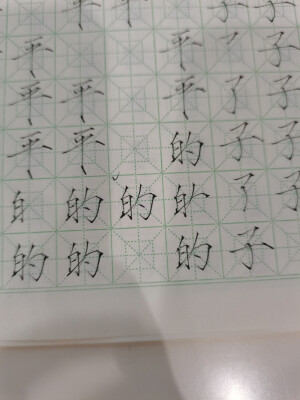 平 平 子 子
平 平 平 子
平 平 平 了 子
平 平 的 子 子
的 的 了 子
的 的 的 子